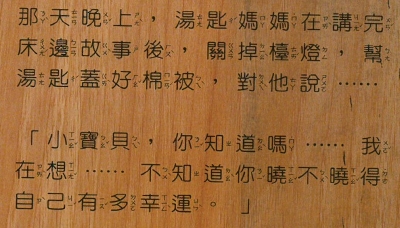 那天晚上，湯匙媽媽在講完
床邊故事後，關掉檯燈，幫
湯匙蓋好棉被，對他說⋯⋯
「小寶貝，你知道嗎⋯⋯我
在想⋯⋯不知道你曉不曉得
自己有多幸運。」